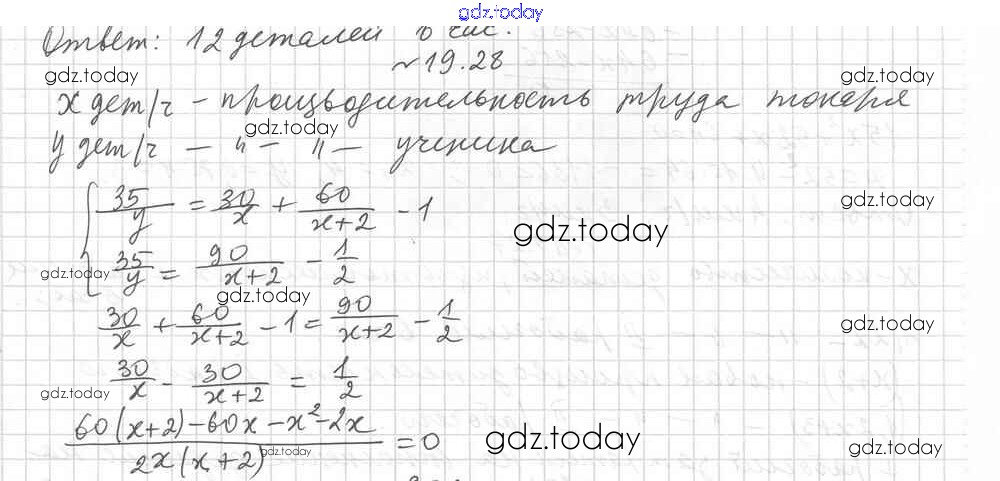 gdz.today
Ответ: 12 деталей в час.
№19.28
gdz.today gdz.today
x дет/ч - производительность труда токаря
gdz.today
y дет/ч — " — " — ученика
gdz.today gdz.today
35/y = 30/x + 60/(x+2) - 1
gdz.today
35/y = 90/(x+2) - 1/2
gdz.today
gdz.today
30/x + 60/(x+2) - 1 = 90/(x+2) - 1/2
gdz.today
30/x - 30/(x+2) = 1/2
gdz.today gdz.today
(60(x+2) - 60x - x² - 2x)/(2x(x+2)) = 0
gdz.today gdz.today